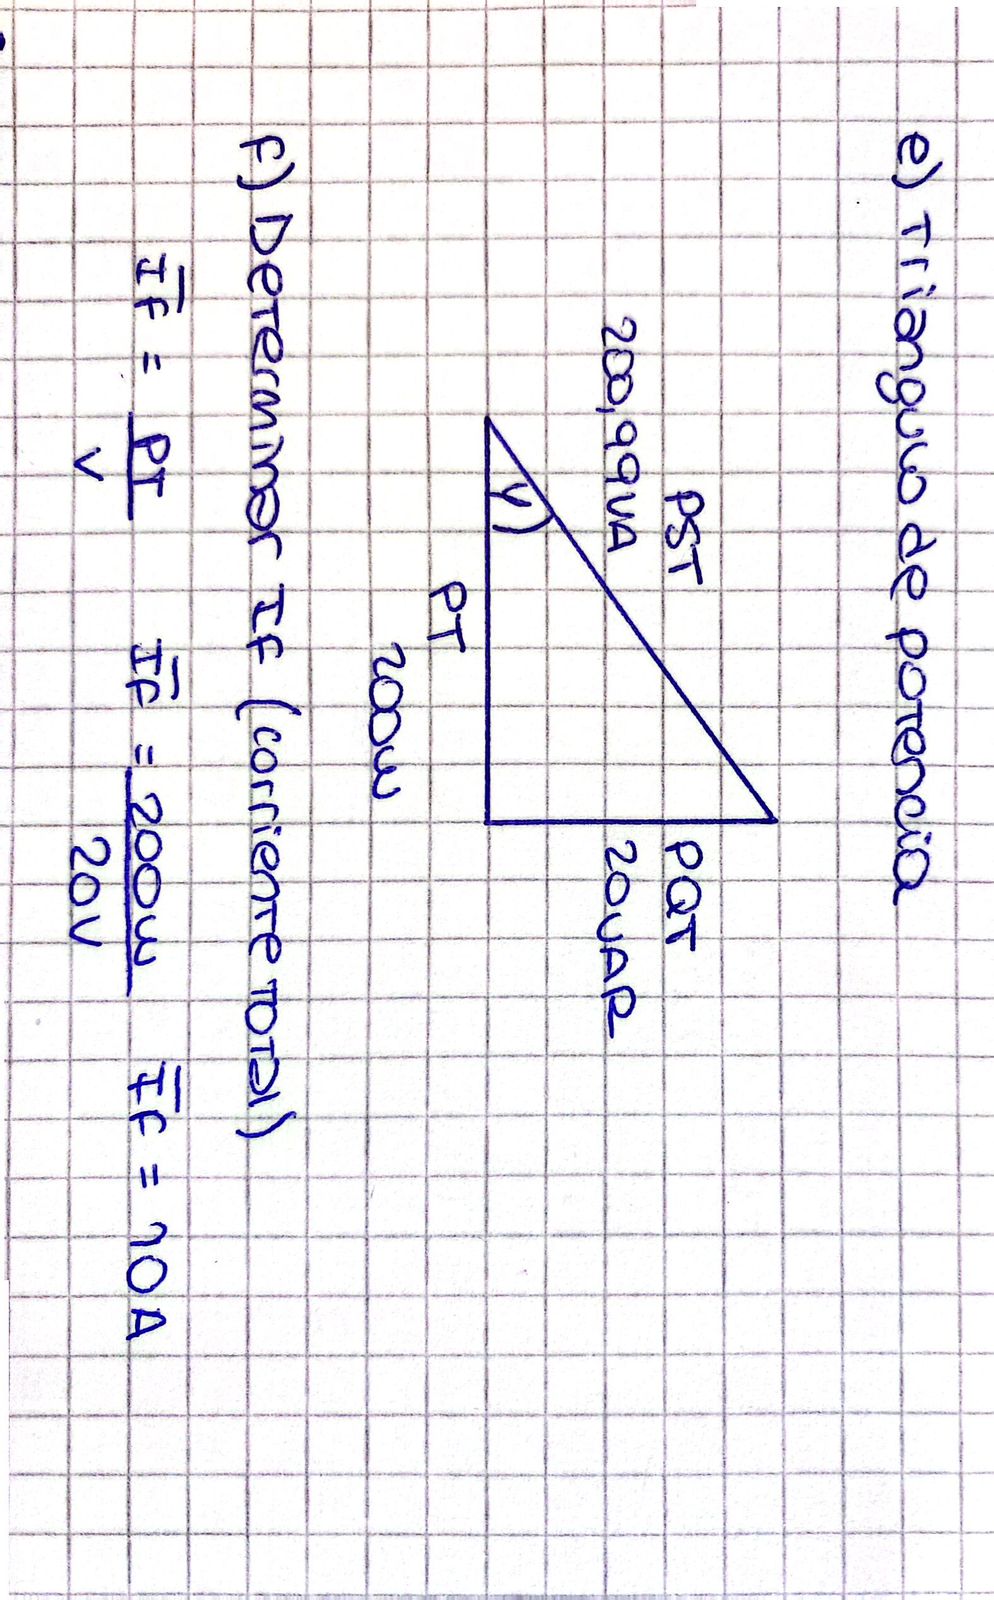 e) Triangulo de potencia
PST
200,99VA
PQT
20VAR
φ
PT
200w
F) Determinar IF (corriente total)
IF = PT / V IF = 200w / 20V IF = 10A